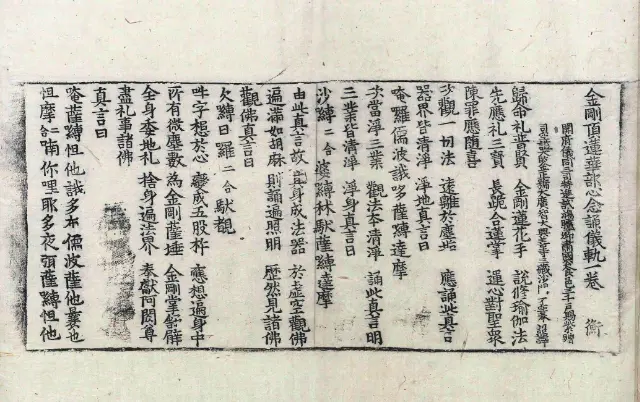 金剛頂蓮華部心念誦儀軌一卷 衡
開府儀同三司特進試鴻臚卿肅國公食邑三千戶賜紫贈
司空謚大鑒正號大廣智大興善寺三藏沙門不空奉 詔譯
歸命礼普賢 金剛蓮花手 說修瑜伽法
先應礼三寶 長跪合蓮掌 運心對聖衆
陳罪應隨喜
次觀一切法 遠離於塵垢 應誦此真言
器界皆清淨 淨地真言曰
唵羅儒波誐哆薩縛達摩
次當淨三業 觀法本清淨 誦此真言明
三業皆清淨 淨身真言曰
沙縛二合婆縛秫馱薩縛達摩
由此真言故 三身成法器 於虛空觀佛
遍滿如胡麻 則誦遍照明 歷然見諸佛
觀佛真言曰
欠縛日羅二合馱覩
吽字想於心 變成五股杵 應想遍身中
所有微塵數 為金剛薩埵 金剛掌舒臂
全身委地礼 捨身遍法界 奉獻阿閦尊
盡礼事諸佛
真言曰
唵薩縛怛他誐多布儒波薩他曩也
怛摩二合喃你哩耶多夜弭薩縛怛他